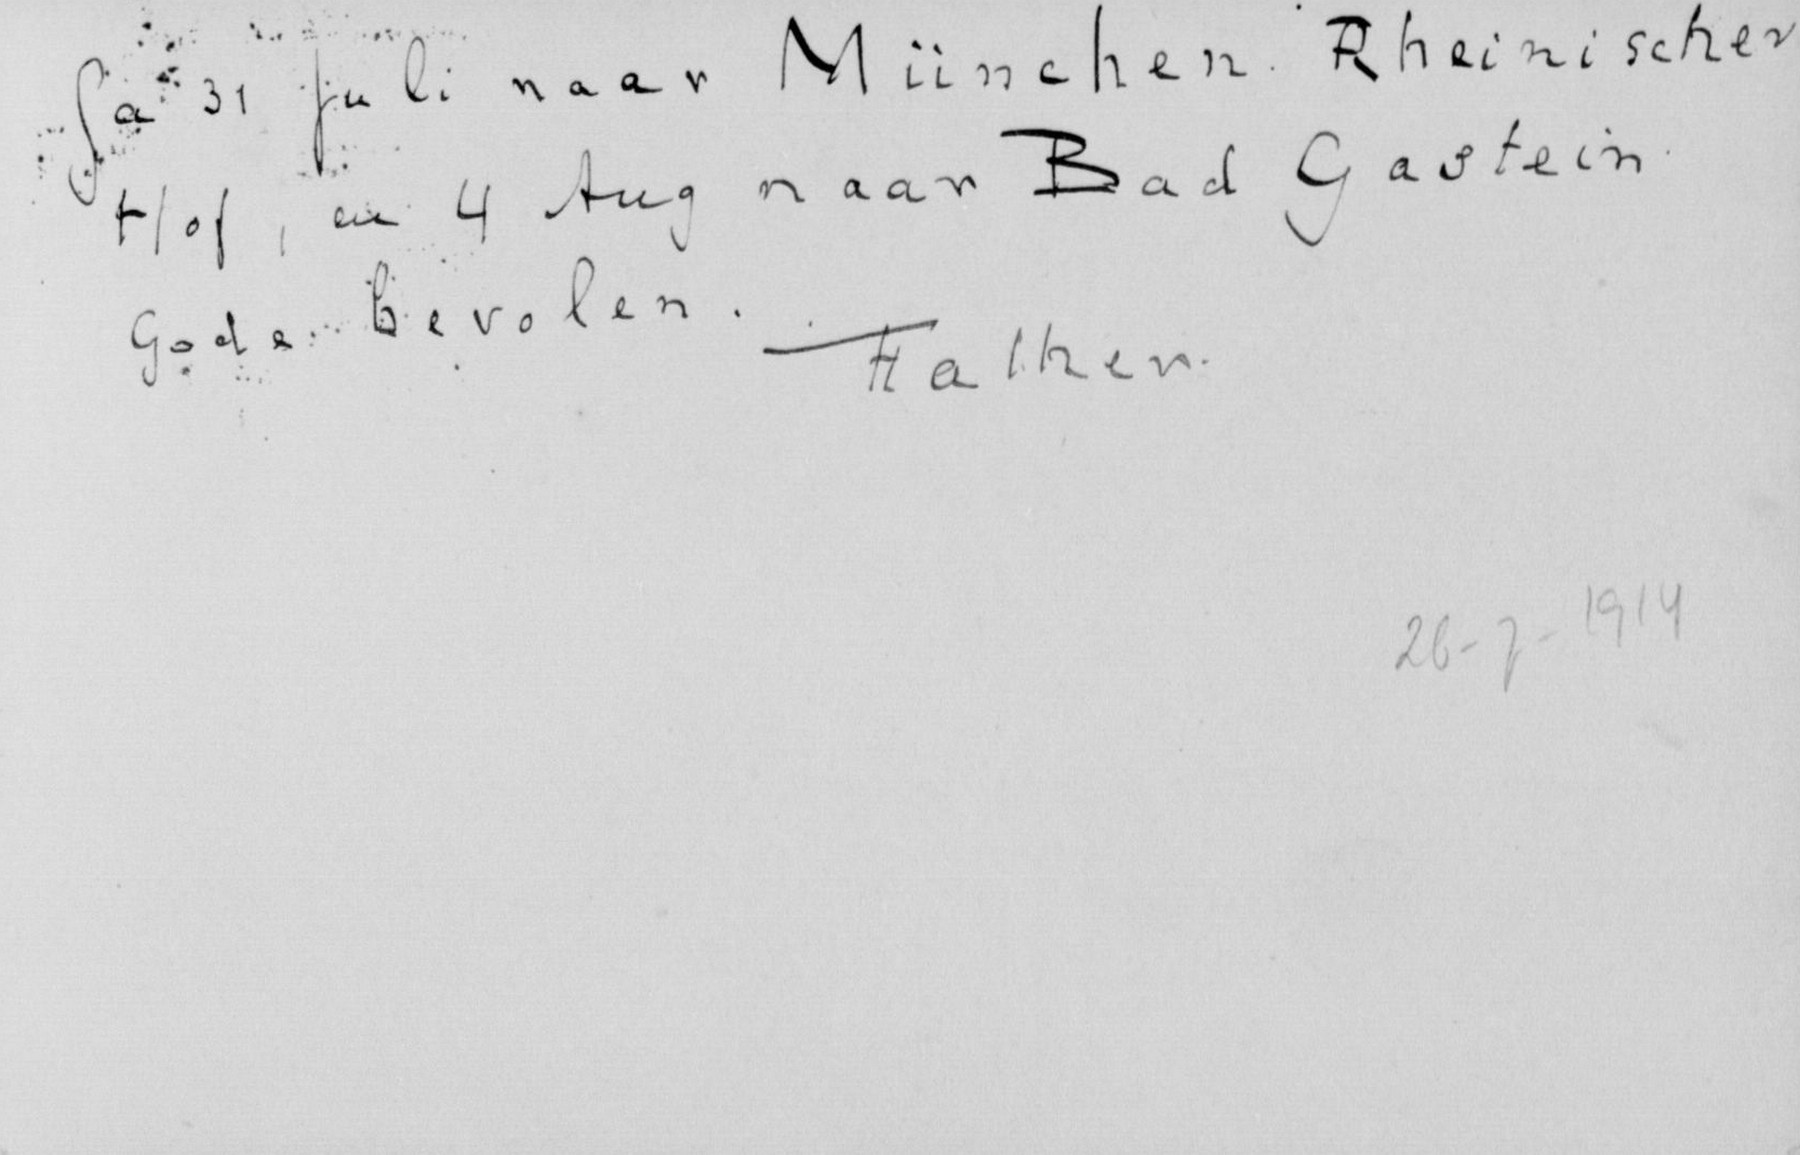 Ga 31 Juli naar München. Rheinischer
Hof, en 4 Aug naar Bad Gastein.
Gode bevolen.
Falken.
26-7-1914